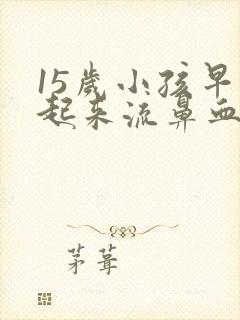 15岁小孩早
起来流鼻血
茅葺